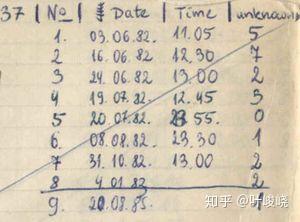 37 | № | Date | Time | unknown
1. 03.06.82. 11.05 5
2 16.06.82. 12.30 7
3 24.06.82 13.00 2
4 19.07.82. 12.45 3
5 20.07.82. 23 55. 0
6. 08.08.82. 23.30 1
7 31.10.82 13.00 2
8 4.01.83 2
9. 20.08.85.
知乎 @叶峻峣